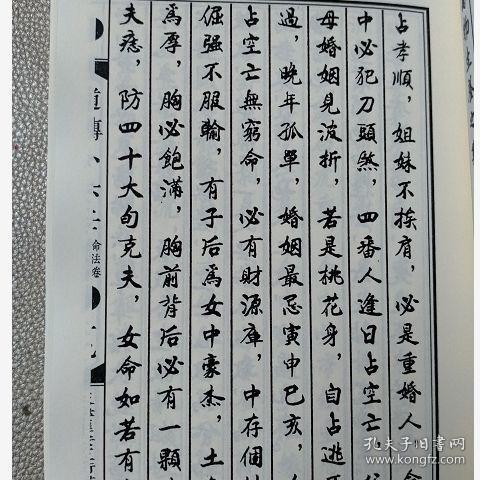 占孝順，姐妹不挨肩，必是重婚人，命
中必犯刀頭煞，四番人逢日占空亡，
母婚姻見波折，若是桃花身，自占逃
過，晚年孤單，婚姻最忌寅申巳亥，
占空亡無窮命，必有財源庫，中存個
倔强不服輸，有子后爲女中豪杰，土
爲孕，胸必飽滿，胸前背后必有一顆
夫痣，防四十大旬克夫，女命如若有
命法卷
孔夫子旧書网
www.kongfz.com